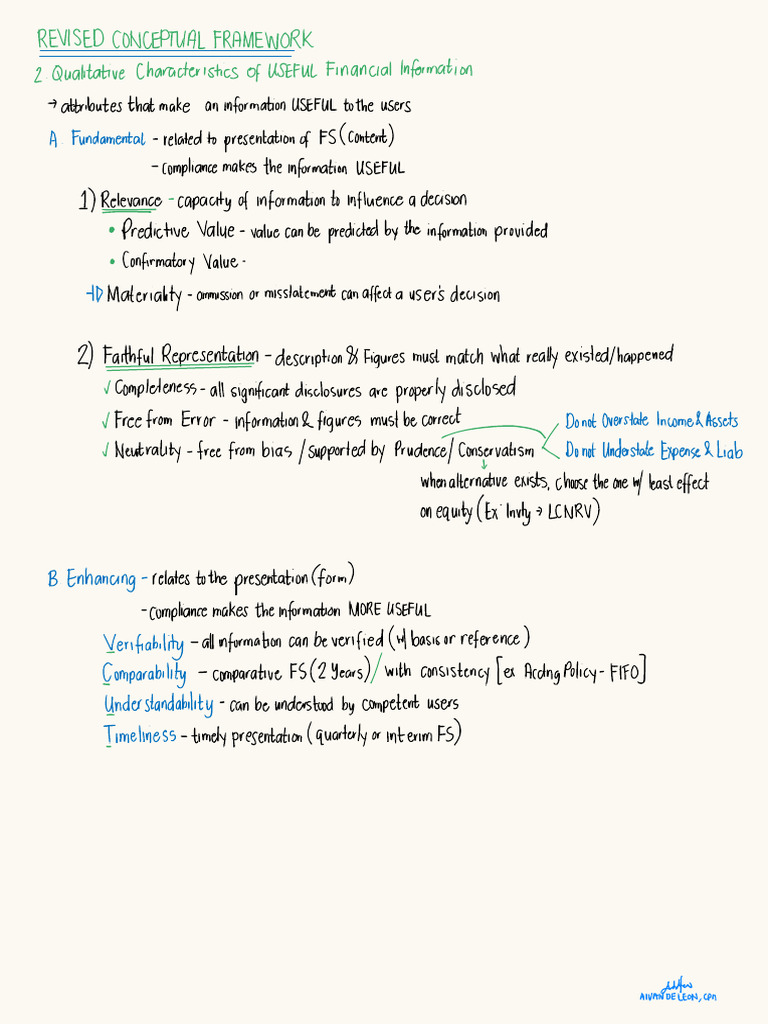 REVISED CONCEPTUAL FRAMEWORK
2. Qualitative Characteristics of USEFUL Financial Information
→ attributes that make an information USEFUL to the users
A. Fundamental - related to presentation of FS (Content)
- compliance makes the information USEFUL
1) Relevance - capacity of information to influence a decision
• Predictive Value - value can be predicted by the information provided
• Confirmatory Value -
Materiality - ommission or misstatement can affect a user's decision
2) Faithful Representation - description & Figures must match what really existed/happened
✓ Completeness - all significant disclosures are properly disclosed
✓ Free from Error - information & figures must be correct
Do not Overstate Income & Assets
✓ Neutrality - free from bias / supported by Prudence / Conservatism
Do not Understate Expense & Liab
when alternative exists, choose the one w/ least effect
on equity (Ex: Invty → LCNRV)
B Enhancing - relates to the presentation (form)
- compliance makes the information MORE USEFUL
Verifiability - all information can be verified (w/ basis or reference)
Comparability - comparative FS (2 Years) / with consistency [ex Acctng Policy - FIFO]
Understandability - can be understood by competent users
Timeliness - timely presentation (quarterly or interim FS)
AIVAN DE LEON, CPA